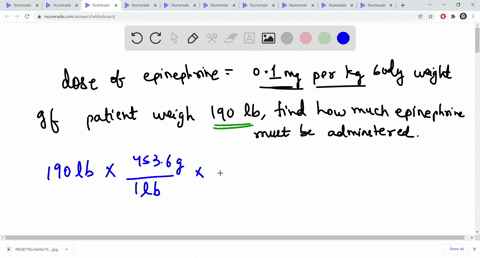 Numerade
Numerade
Numerade
Numerade
Numerade
Numerade
Numerade
Numerade
Numerade
numerade.com/answers/whiteboard/
A
dose of epinephrine = 0.1 mg per kg body weight
gf patient weigh 190 lb, find how much epinephrine
must be administered.
190 lb × 453.6 g ×
1 lb
Show all